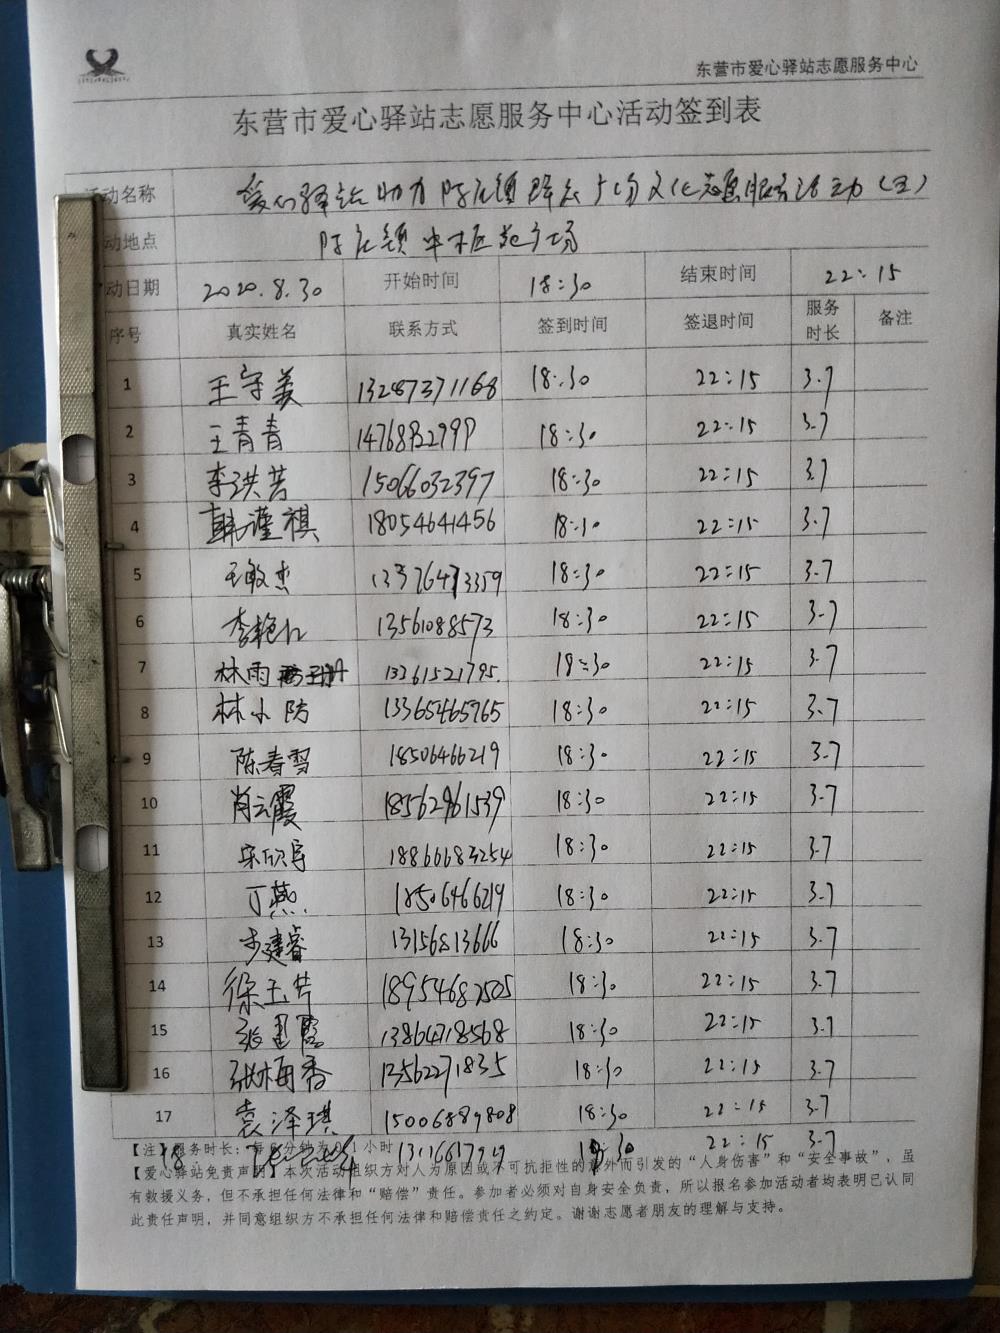 东营市爱心驿站志愿服务中心
东营市爱心驿站志愿服务中心活动签到表
活动名称 爱心驿站助力陈庄镇群众广场文化志愿服务活动(五)
动地点 陈庄镇中枢苑广场
动日期 2020.8.30 开始时间 18:30 结束时间 22:15
序号 真实姓名 联系方式 签到时间 签退时间 服务时长 备注
1 王守美 13287371168 18:30 22:15 3.7
2 王青青 18:30 22:15 3.7
3 李洪芳 15066032397 18:30 22:15 3.7
4 韩谨祺 18054641456 18:30 22:15 3.7
5 王敏杰 18:30 22:15 3.7
6 李艳红 13561088573 18:30 22:15 3.7
7 林雨 13361521795. 18:30 22:15 3.7
8 林小防 13365465765 18:30 22:15 3.7
9 陈春雪 18506466219 18:30 22:15 3.7
10 肖云霞 18562961539 18:30 22:15 3.7
11 宋欣宇 18866683254 18:30 22:15 3.7
12 丁燕 18506466219 18:30 22:15 3.7
13 步建睿 13156813666 18:30 22:15 3.7
14 徐玉芹 18954687505 18:30 22:15 3.7
15 13864718568 18:30 22:15 3.7
16 张梅香 13562271835 18:30 22:15 3.7
17 袁泽琪 15006889808 18:30 22:15 3.7
18 18:30 22:15 3.7
【注】服务时长:每6分钟为0.1小时
【爱心驿站免责声明】本次活动组织方对人为原因或不可抗拒性的意外而引发的“人身伤害”和“安全事故”,虽
有救援义务,但不承担任何法律和“赔偿”责任。参加者必须对自身安全负责,所以报名参加活动者均表明已认同
此责任声明,并同意组织方不承担任何法律和赔偿责任之约定。谢谢志愿者朋友的理解与支持。